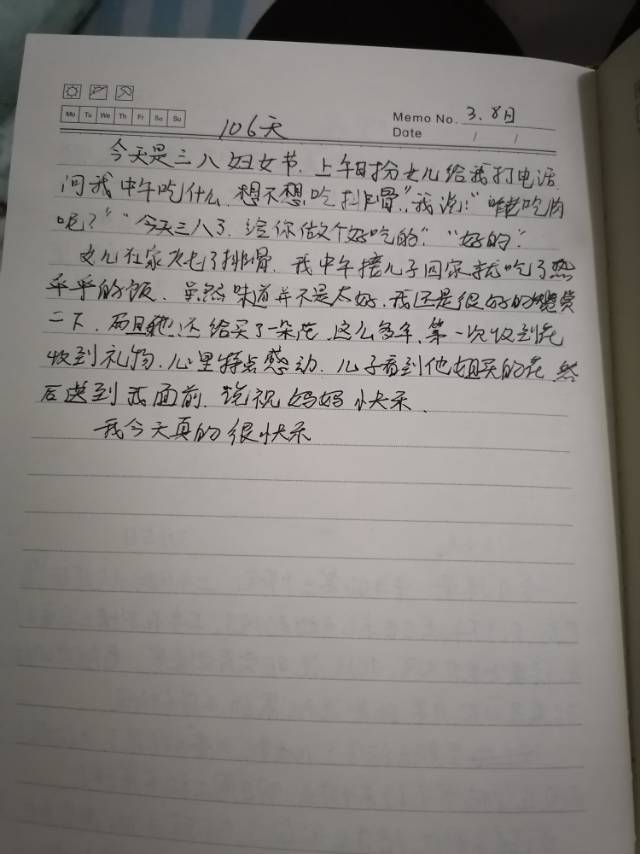 Mo Tu We Th Fr Sa Su
Memo No. 3.8日
Date / /
106天
今天是三八妇女节.上午时分女儿给我打电话
问我中午吃什么,想不想吃排骨,"我说:"咋老吃肉
呢?""今天三八了.给你做个好吃的""好的".
女儿在家炖了排骨.我中午接儿子回家就吃了热
乎乎的饭.虽然味道并不是太好.我还是很好的赞赏
一下.而且她还给买了一朵花.这么多年.第一次收到花
收到礼物.心里特点感动.儿子看到他姐买的花 然
后送到我面前.说祝妈妈快乐.
我今天真的很快乐